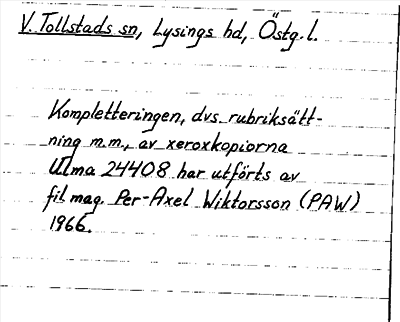 V. Tollstads sn, Lysings hd, Östg.l.
Kompletteringen, dvs. rubriksätt-
ning m.m., av xeroxkopiorna
Ulma 24408 har utförts av
fil. mag. Per-Axel Wiktorsson (PAW)
1966.